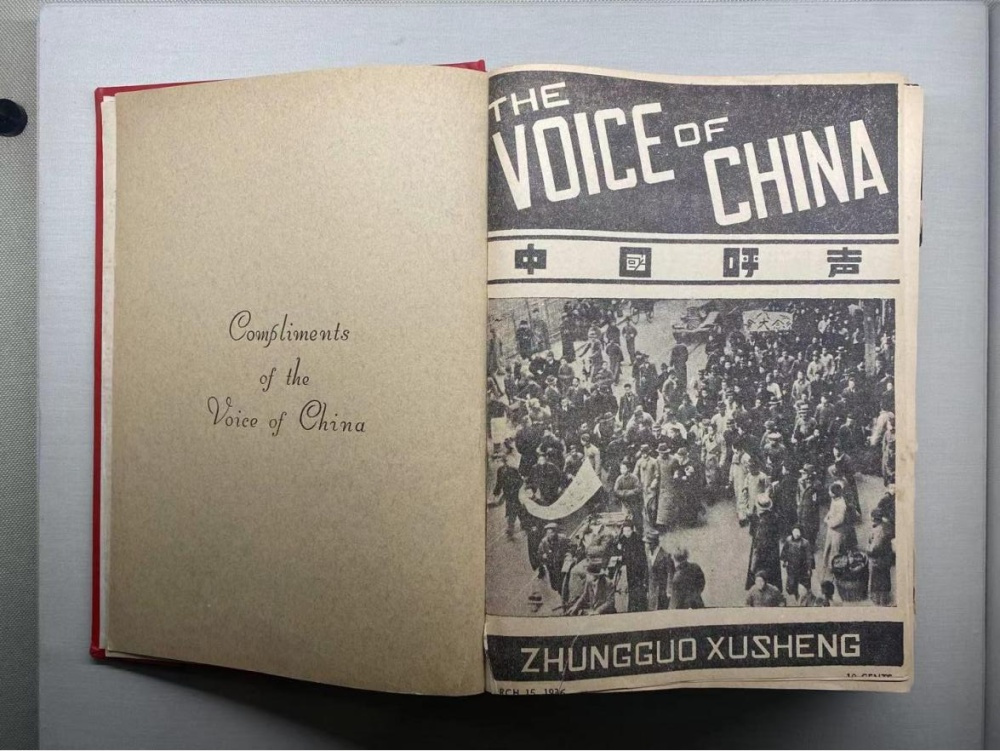 Compliments
of the
Voice of China
THE
VOICE OF
CHINA
中國呼声
ZHUNGGUO XUSHENG
10 CENTS
RCH 15, 1936